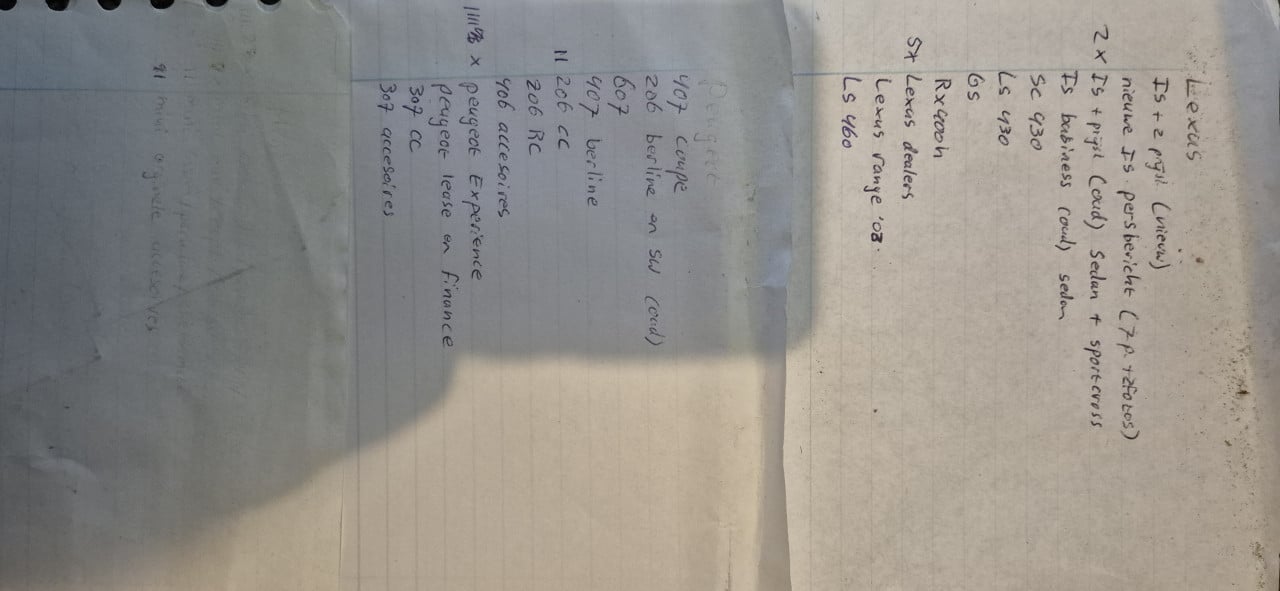 Lexus
IS + 2 prijsl (nieuw)
nieuwe IS persbericht (7p. + 2fotos)
2x IS + prijsl (oud) Sedan + sportcross
IS business (oud) sedan
SC 430
LS 430
GS
RX400h
5x Lexus dealers
Lexus range '03.
LS 460
Peugeot
407 coupe
206 berline en SW (oud)
607
407 berline
11 206 CC
206 RC
406 accessoires
x peugeot Experience
peugeot lease en finance
307 CC
307 accesoires
mini originele accesoires